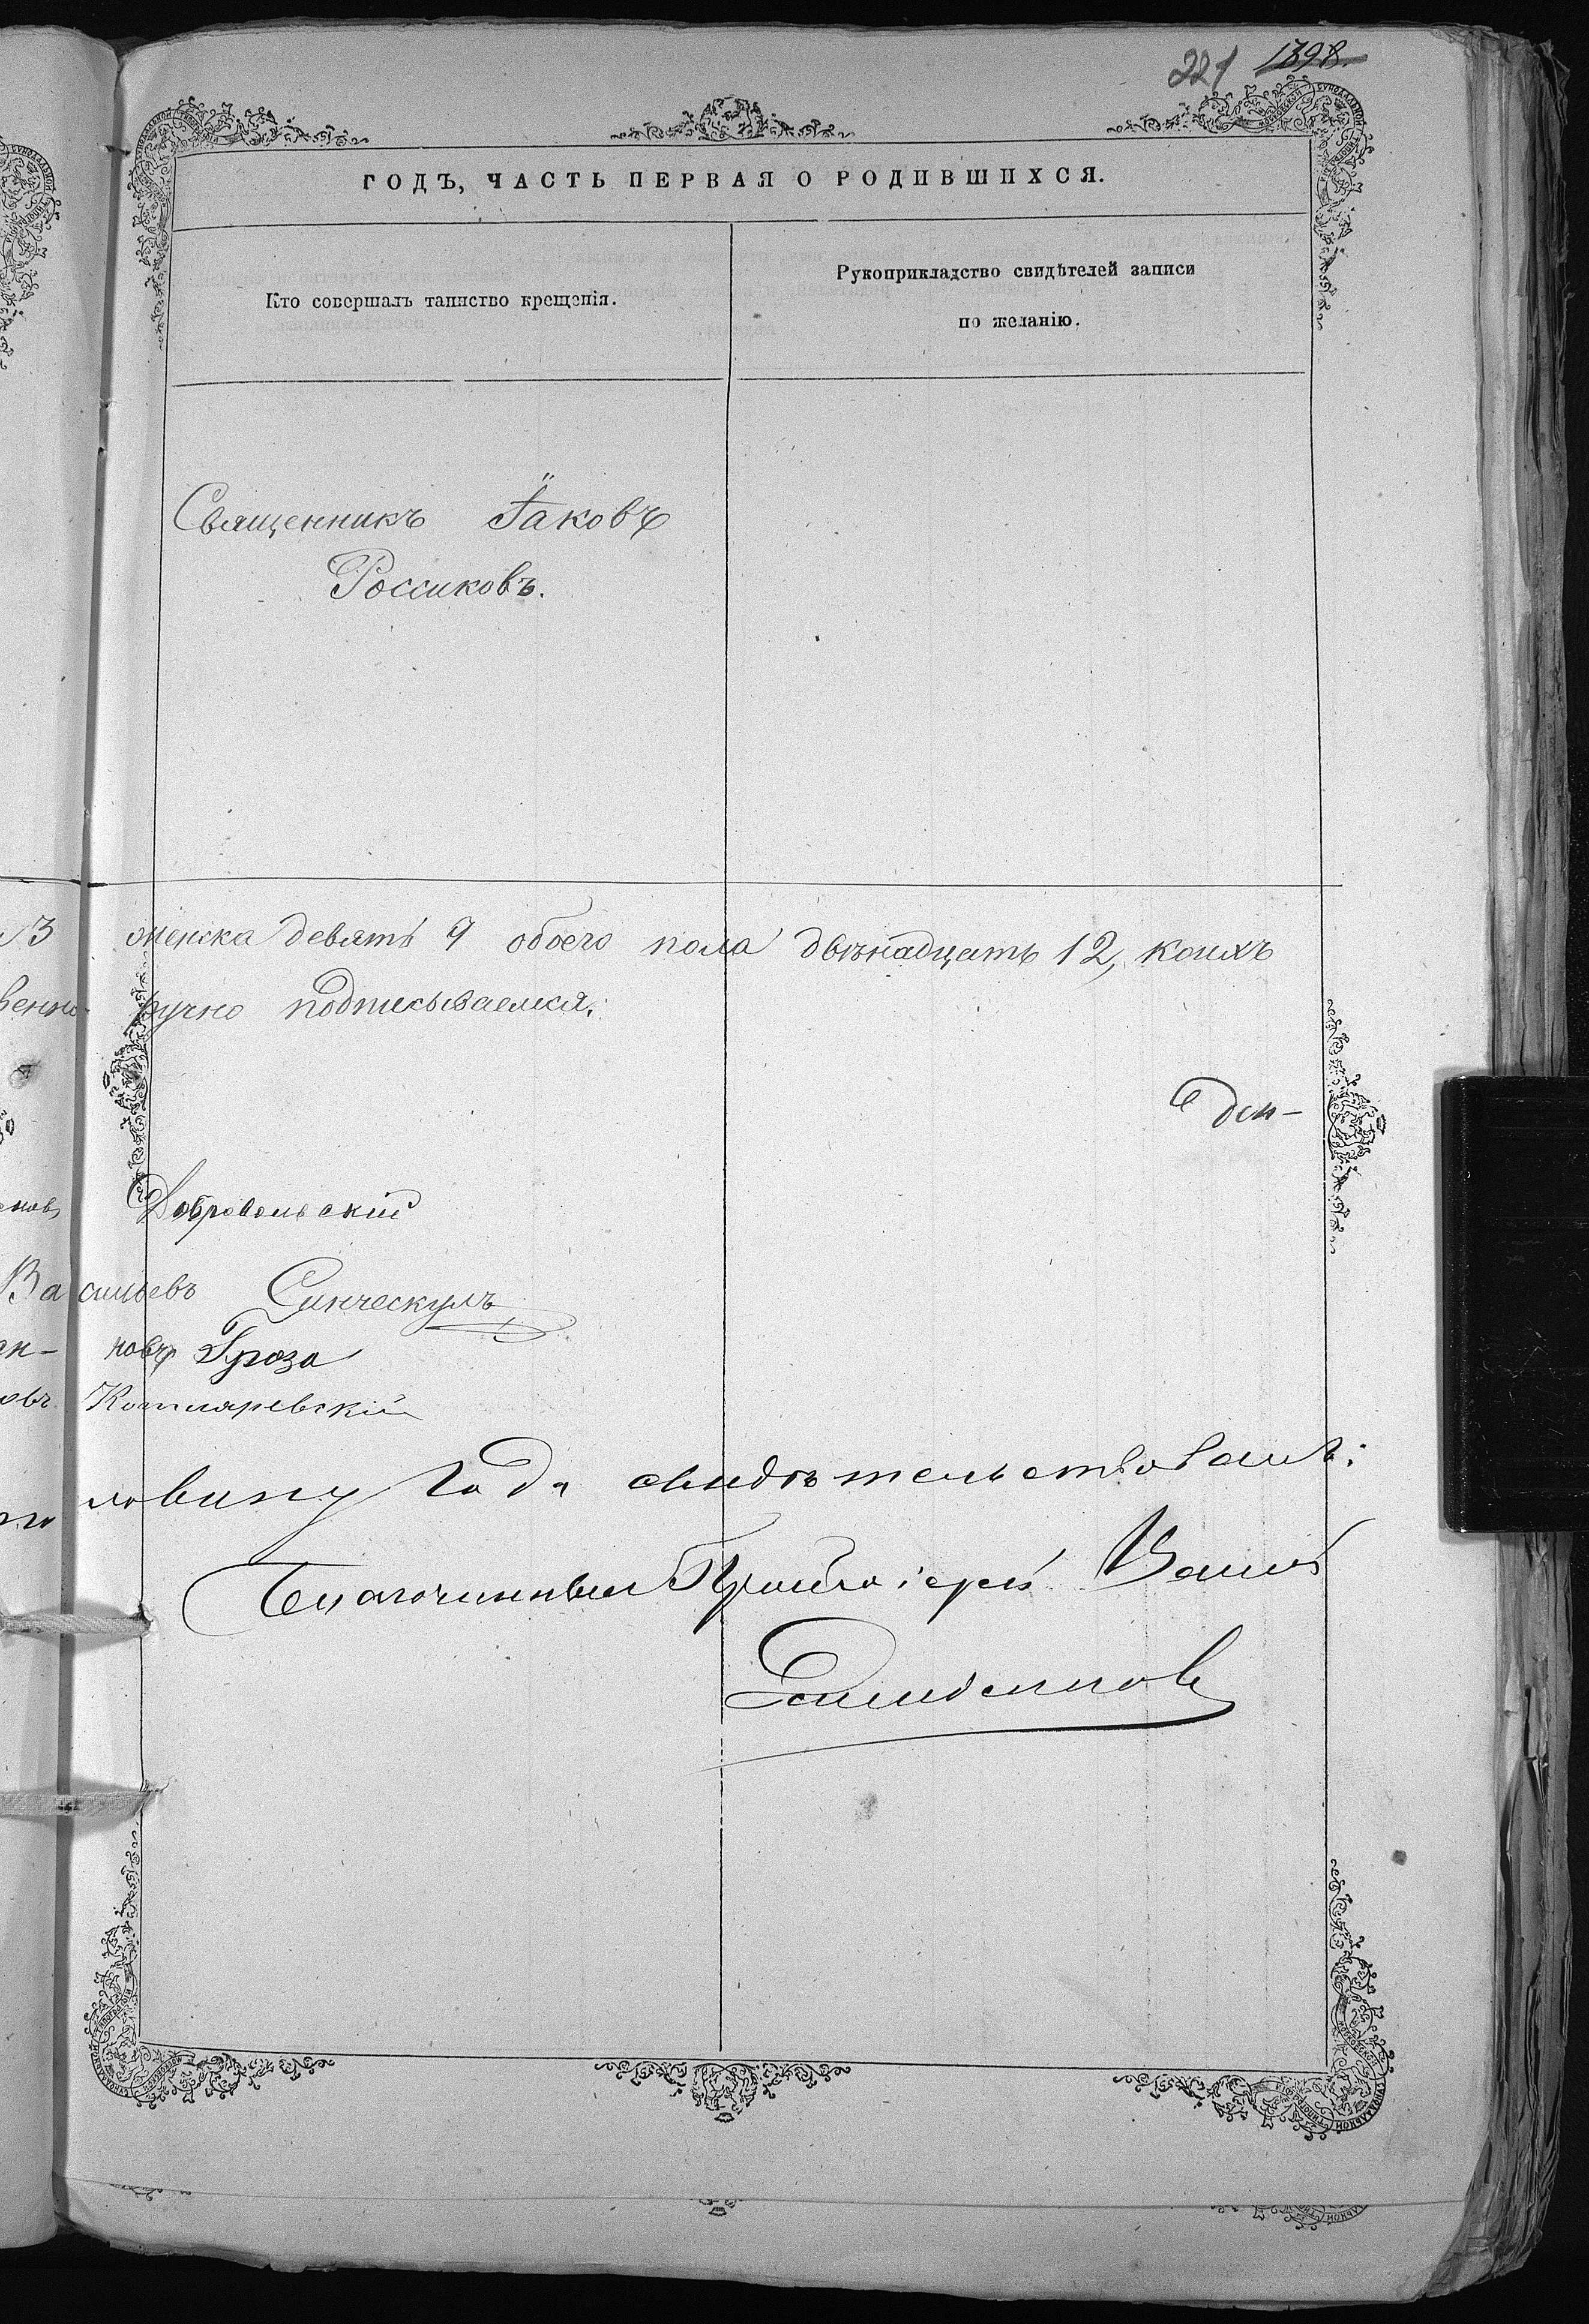 221 1398.
ГОДЪ, ЧАСТЬ ПЕРВАЯ О РОДИВШИХСЯ.
Кто совершалъ таинство крещенія.
Рукоприкладство свидѣтелей записи
по желанію.
Священникъ Іаковъ
Россиковъ.
3 женска девять 9 обоего пола двѣнадцать 12, коихъ
венно ручно подписываемся.
Добровольскій
Васильевъ
новъ Гроза
Котляревскій
ловину года свидѣтельствовалъ:
Благочинный Протоіерей